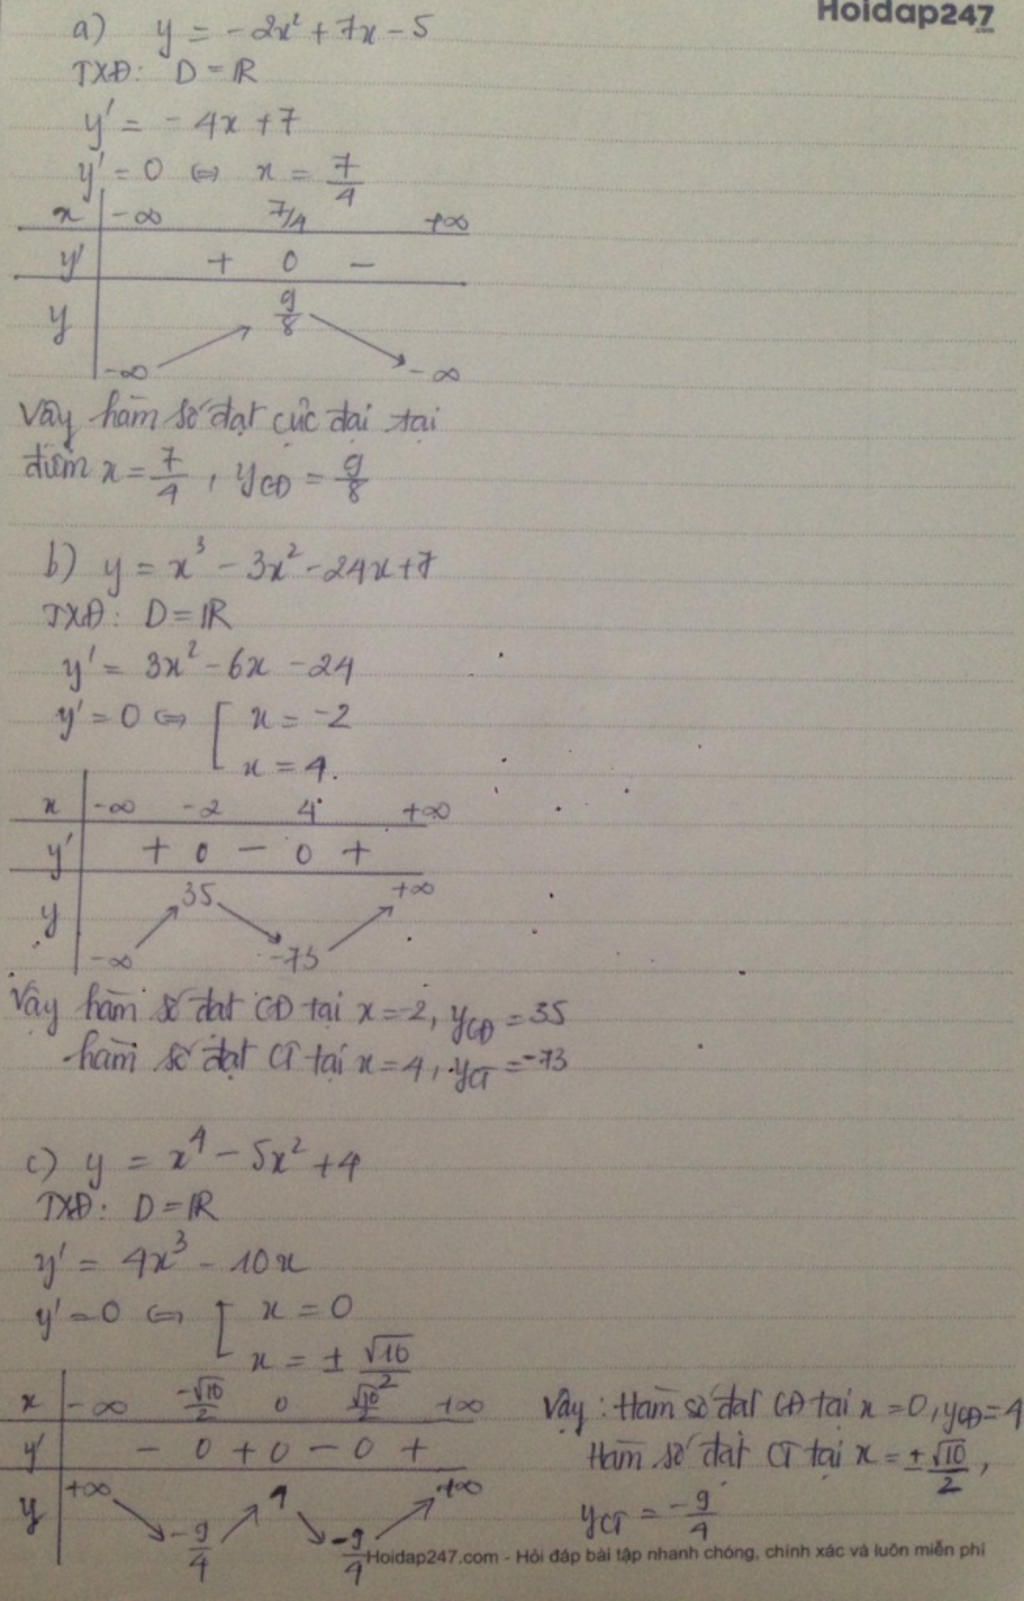 Hoidap247
.com
a) y = -2x² + 7x - 5
TXĐ: D = ℝ
y' = -4x + 7
y' = 0 ⇔ x = 7/4
x | -∞ 7/4 +∞
y' | + 0 -
y | -∞ ↗ 9/8 ↘ -∞
Vậy hàm số đạt cực đại tại
điểm x = 7/4, yCĐ = 9/8
b) y = x³ - 3x² - 24x + 7
TXĐ: D = ℝ
y' = 3x² - 6x - 24
y' = 0 ⇔ [ x = -2
x = 4.
x | -∞ -2 4 +∞
y' | + 0 - 0 +
y | -∞ ↗ 35 ↘ -73 ↗ +∞
Vậy hàm số đạt CĐ tại x = -2, yCĐ = 35
hàm số đạt CT tại x = 4, yCT = -73
c) y = x⁴ - 5x² + 4
TXĐ: D = ℝ
y' = 4x³ - 10x
y' = 0 ⇔ [ x = 0
x = ± √10/2
x | -∞ -√10/2 0 √10/2 +∞
y' | - 0 + 0 - 0 +
y | +∞ ↘ -9/4 ↗ 4 ↘ -9/4 ↗ +∞
Vậy: Hàm số đạt CĐ tại x = 0, yCĐ = 4
Hàm số đạt CT tại x = ± √10/2,
yCT = -9/4
Hoidap247.com - Hỏi đáp bài tập nhanh chóng, chính xác và luôn miễn phí